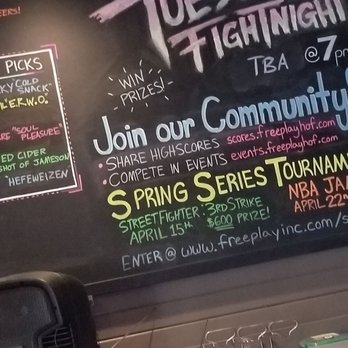 EERS!
PICKS
KY COLD
SNACK"
L'E.R.W.O."
RE "SOUL
PLEASURE"
ED CIDER
SHOT OF JAMESON
HEFEWEIZEN
TUES
FIGHTNIGHT
TBA @ 7p
WIN
PRIZES!
Join our Community!
• SHARE HIGHSCORES scores.freeplayhof.com
• COMPETE IN EVENTS events.freeplayhof.com
SPRING SERIES TOURNAM
STREET FIGHTER: 3RD STRIKE
APRIL 15TH $600 PRIZE!
NBA JA
APRIL 22N
ENTER @ www.freeplayinc.com/s